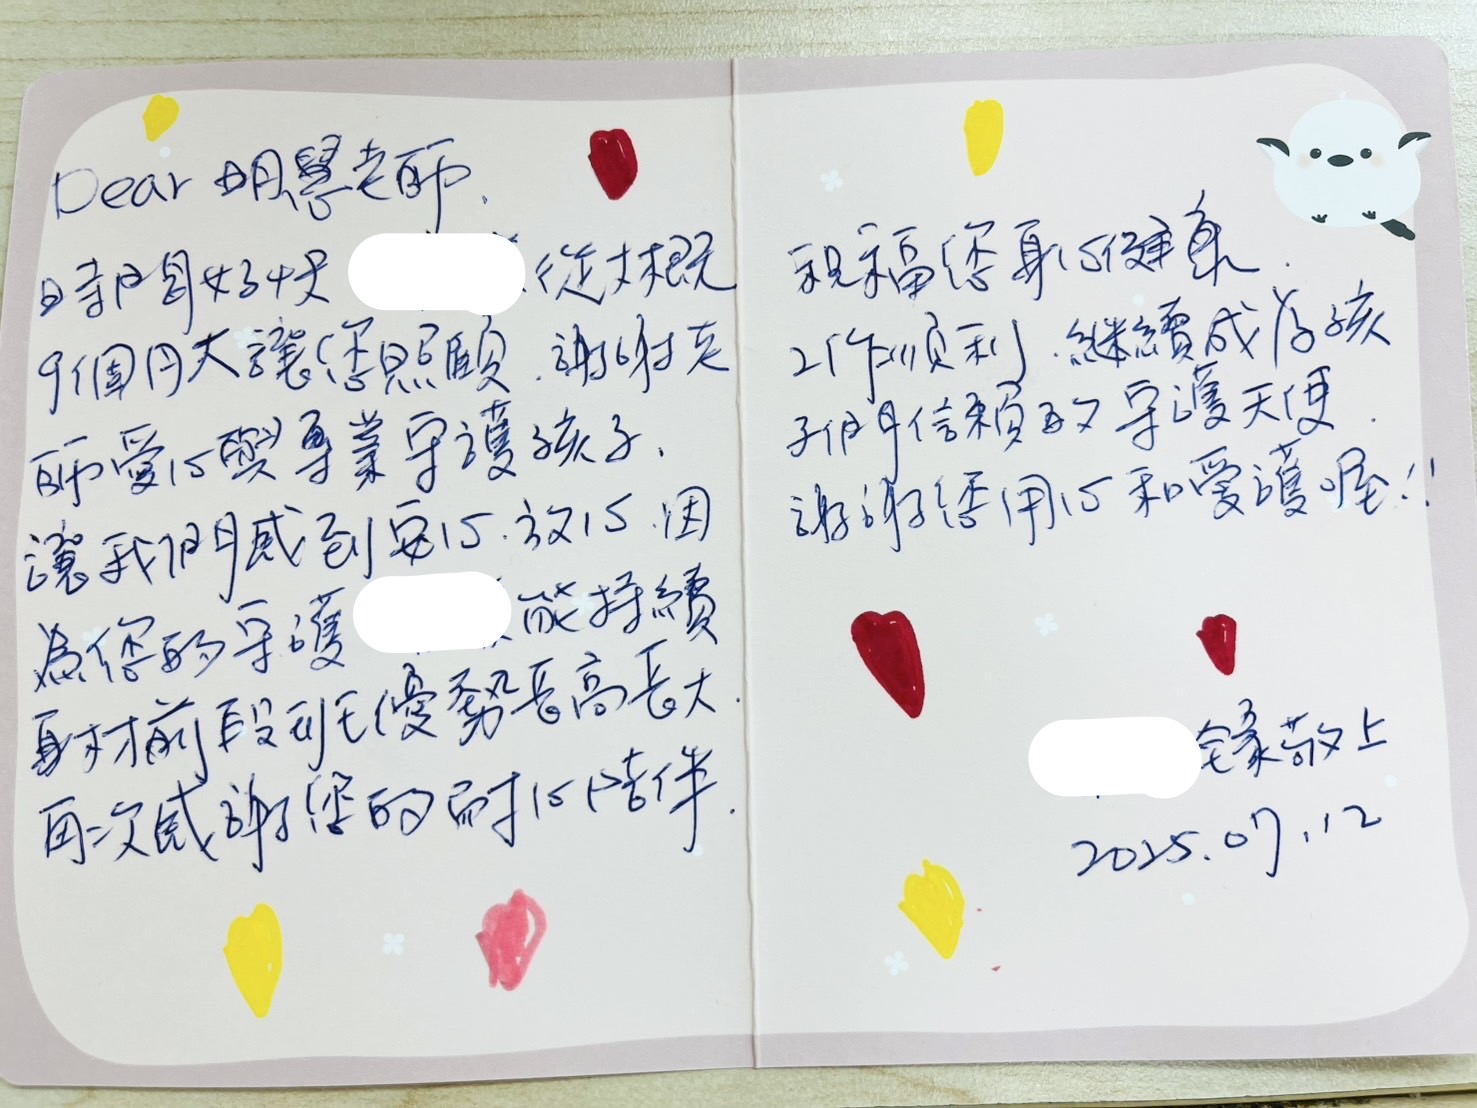 Dear 明學老師.
時間好快 從大概
9個月大讓您照顧.謝謝老
師愛心與專業守護孩子.
讓我們感到安心.放心.因
為您的守護 能持續
取材前段班優勢長高長大.
再次感謝您的耐心陪伴.
祝福您身心健康.
工作順利.繼續成為孩
子們信賴的守護天使.
謝謝您用心和愛護喔!!
全家敬上
2025.07.12